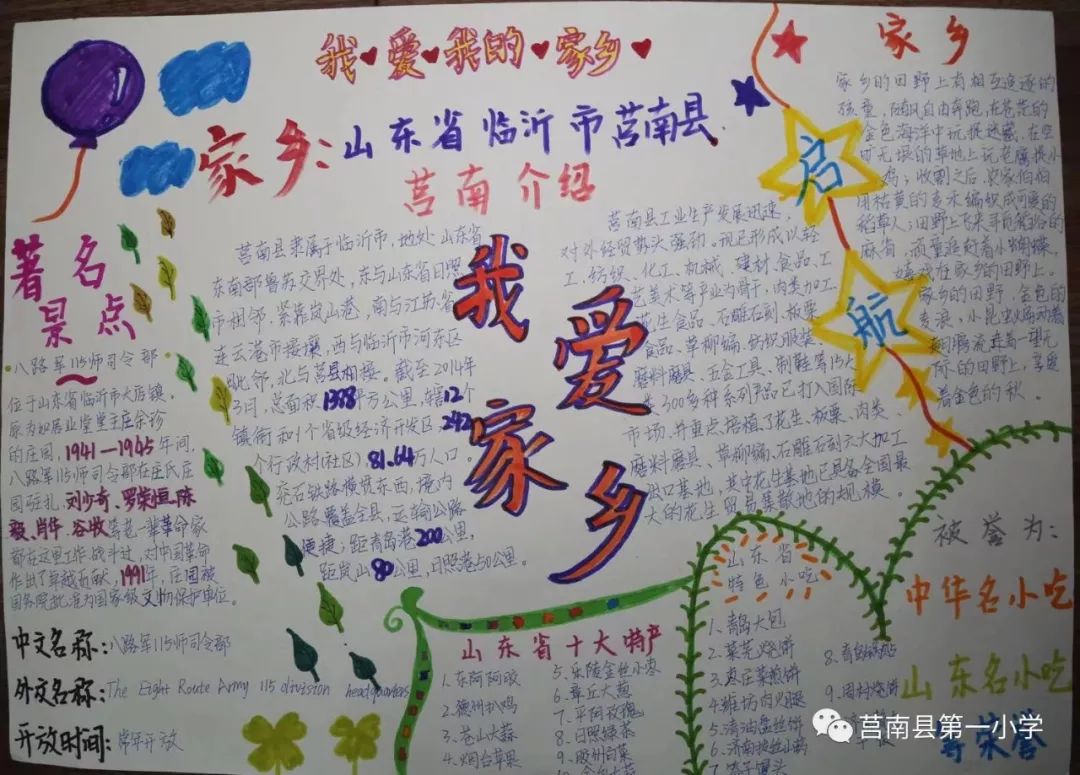 我爱我的家乡
家乡:山东省临沂市莒南县
莒南介绍
家乡
家乡的田野上有相互追逐的
孩童,随风自由奔跑,在苍茫的
金色海洋中玩捉迷藏,在空
旷无垠的草地上玩老鹰捉小
鸡;收割之后,农家伯伯
用枯黄的麦禾编织成可爱的
稻草人;田野上飞来寻觅
麻省,顽童追赶着小蝴蝶,
嬉戏在家乡的田野上。
家乡的田野,金色的
麦浪,小昆虫
着金色的秋。
启航
著名景点
八路军115师司令部
位于山东省临沂市大店镇,
原为
的庄园,1941—1945年间,
八路军115师司令部在庄氏庄
园驻扎,刘少奇、罗荣恒、陈
毅、肖华、谷牧等老一辈革命家
都在这里工作战斗过,对中国革命
作出了卓越贡献,1991年,庄园被
国务院批准为国家级文物保护单位。
中文名称:八路军115师司令部
外文名称:The Eight Route Army 115 division headquarters
开放时间:常年开放
莒南县隶属于临沂市,地处山东省
东南部鲁苏交界处,东与山东省日照
市相邻,紧靠岚山港,南与江苏省
连云港市接壤,西与临沂市河东区
毗邻,北与莒县相接。截至2014年
3月,总面积1388平方公里,辖12个
镇街和1个省级经济开发区,242
个行政村(社区),81.64万人口。
兖石铁路横贯东西,境内
公路覆盖全县,运输公路
便捷;距青岛港200公里,
距岚山80公里,日照港50公里。
我爱家乡
莒南县工业生产发展迅速,
对外经贸势头强劲,现已形成以轻
工、纺织、化工、机械、建材、食品、工
艺美术等产业为骨干,肉类加工、
花生食品、石雕石刻、板栗
食品、草柳编、纺织服装、
磨料磨具、五金工具、制鞋等15大
类300多种系列产品已打入国际
市场,并重点培植了花生、板栗、肉类、
磨料磨具、草柳编、石雕石刻六大加工
出口基地,其中花生基地已具备全国最
大的花生贸易集散地的规模。
山东省十大特产
1、东阿阿胶
2、德州扒鸡
3、苍山大蒜
4、烟台苹果
5、乐陵金丝小枣
6、章丘大葱
7、平阴玫瑰
8、日照绿茶
9、胶州白菜
山东省
特色小吃
1、青岛大包
2、莱芜烧饼
3、枣庄菜煎饼
4、潍坊肉火烧
5、清油盘丝饼
6、济南
7、
8、青岛锅贴
9、周村烧饼
被誉为:
中华名小吃
山东名小吃
等荣誉
莒南县第一小学